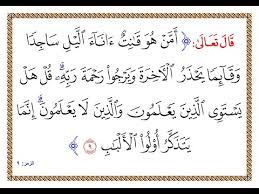 قَالَ تَعَالَىٰ: ﴿ أَمَّنْ هُوَ قَٰنِتٌ ءَانَآءَ ٱلَّيْلِ سَاجِدًا
وَقَآئِمًا يَحْذَرُ ٱلْءَاخِرَةَ وَيَرْجُوا۟ رَحْمَةَ رَبِّهِۦ ۗ قُلْ هَلْ
يَسْتَوِى ٱلَّذِينَ يَعْلَمُونَ وَٱلَّذِينَ لَا يَعْلَمُونَ ۗ إِنَّمَا
يَتَذَكَّرُ أُو۟لُوا۟ ٱلْأَلْبَٰبِ ٩ ﴾
الزمر: ٩